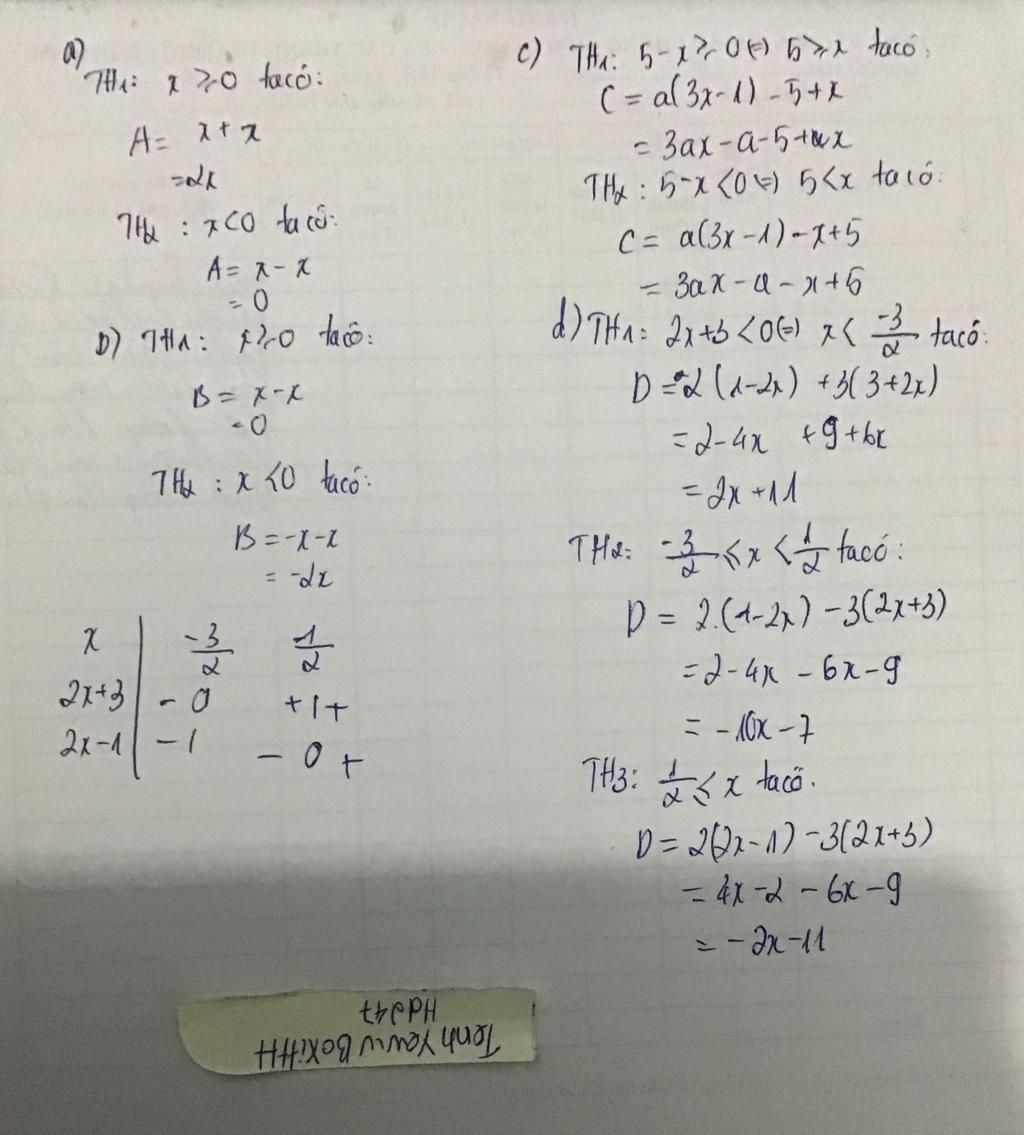 a)
TH1: x ≥ 0 ta có:
A = x + x
= 2x
TH2 : x < 0 ta có:
A = x - x
= 0
b) TH1 : x ≥ 0 ta có:
B = x - x
= 0
TH2 : x < 0 ta có:
B = -x - x
= -2x
x | -3/2 1/2
2x+3 | - 0 + | +
2x-1 | - | - 0 +
c) TH1: 5-x ≥ 0 (=) 5 ≥ x ta có:
C = a(3x-1) - 5 + x
= 3ax - a - 5 + x
TH2 : 5-x < 0 (=) 5 < x ta có:
C = a(3x-1) - x + 5
= 3ax - a - x + 5
d) TH1: 2x+3 < 0 (=) x < -3/2 ta có:
D = 2(1-2x) + 3(3+2x)
= 2-4x + 9 + 6x
= 2x + 11
TH2: -3/2 ≤ x < 1/2 ta có:
D = 2.(1-2x) - 3(2x+3)
= 2 - 4x - 6x - 9
= -10x - 7
TH3: 1/2 ≤ x ta có.
D = 2(2x-1) - 3(2x+3)
= 4x - 2 - 6x - 9
= -2x - 11
Hdd947